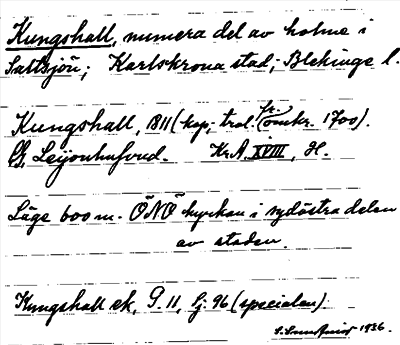 Kungshall, numera del av holme i
Saltsjön; Karlskrona stad; Blekinge l.
Kungshall, B11 (kop; trol. fr. omkr. 1700).
G. Leijonhufvud. Kr.A. XVIII, H.
Läge 600 m. ÖNÖ kyrkan i sydöstra delen
av staden.
Kungshall ek, G.11, bj. 96 (specialen).
1936.